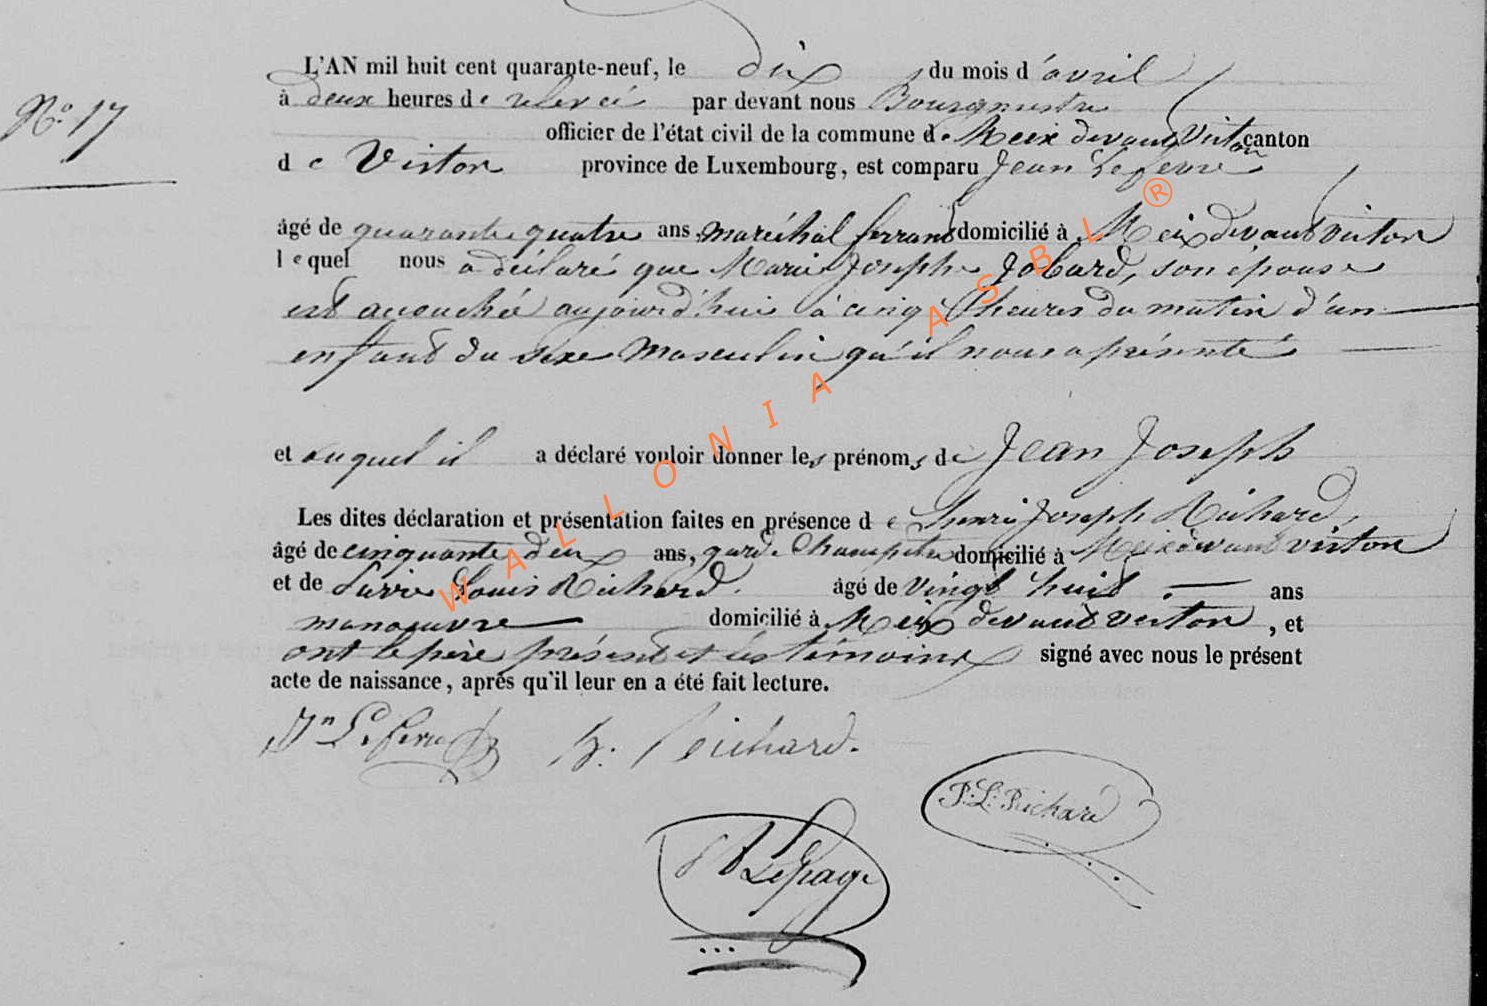 L'AN mil huit cent quarante-neuf, le dix du mois d'avril
No. 17
à deux heures de relevée par devant nous Bourgmestre
officier de l'état civil de la commune de Meix devant Virton canton
de Virton province de Luxembourg, est comparu Jean Lefevre
âgé de quarante quatre ans, maréchal ferrant domicilié à Meix devant virton
lequel nous a déclaré que Marie Joseph Jobard, son épouse
est accouchée aujourd'hui à cinq heures du matin d'un
enfant du sexe masculin qu'il nous a présenté
et auquel il a déclaré vouloir donner les prénoms de Jean Joseph
Les dites déclaration et présentation faites en présence de Henri Joseph Richard,
âgé de cinquante deux ans, garde Champêtre domicilié à Meix devant virton
et de Pierre Louis Richard. âgé de vingt huit ans
manoeuvre domicilié à Meix devant virton, et
ont le père présent et les témoins signé avec nous le présent
acte de naissance, aprés qu'il leur en a été fait lecture.
Jn Lefevre h. Richard.
P: L: Richard
Lepage
WALLONIA ASBL ®